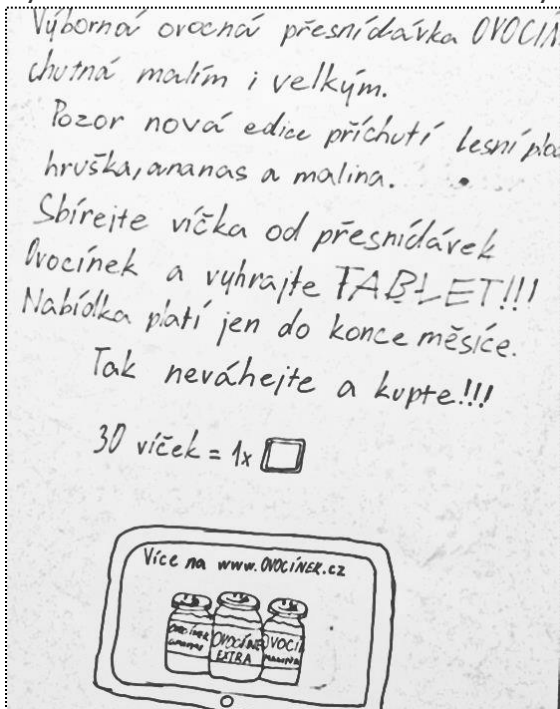 Výborná ovocná přesnídávka OVOCÍN
chutná malím i velkým.
Pozor nová edice příchutí lesní plo
hruška, ananas a malina.
Sbírejte víčka od přesnídávek
Ovocínek a vyhrajte TABLET!!!
Nabídka platí jen do konce měsíce.
Tak neváhejte a kupte!!!
30 víček = 1x
Více na www.OVOCÍNEK.cz
OVOCÍNEK ANANAS
OVOCÍNEK EXTRA
OVOCÍ MALINA